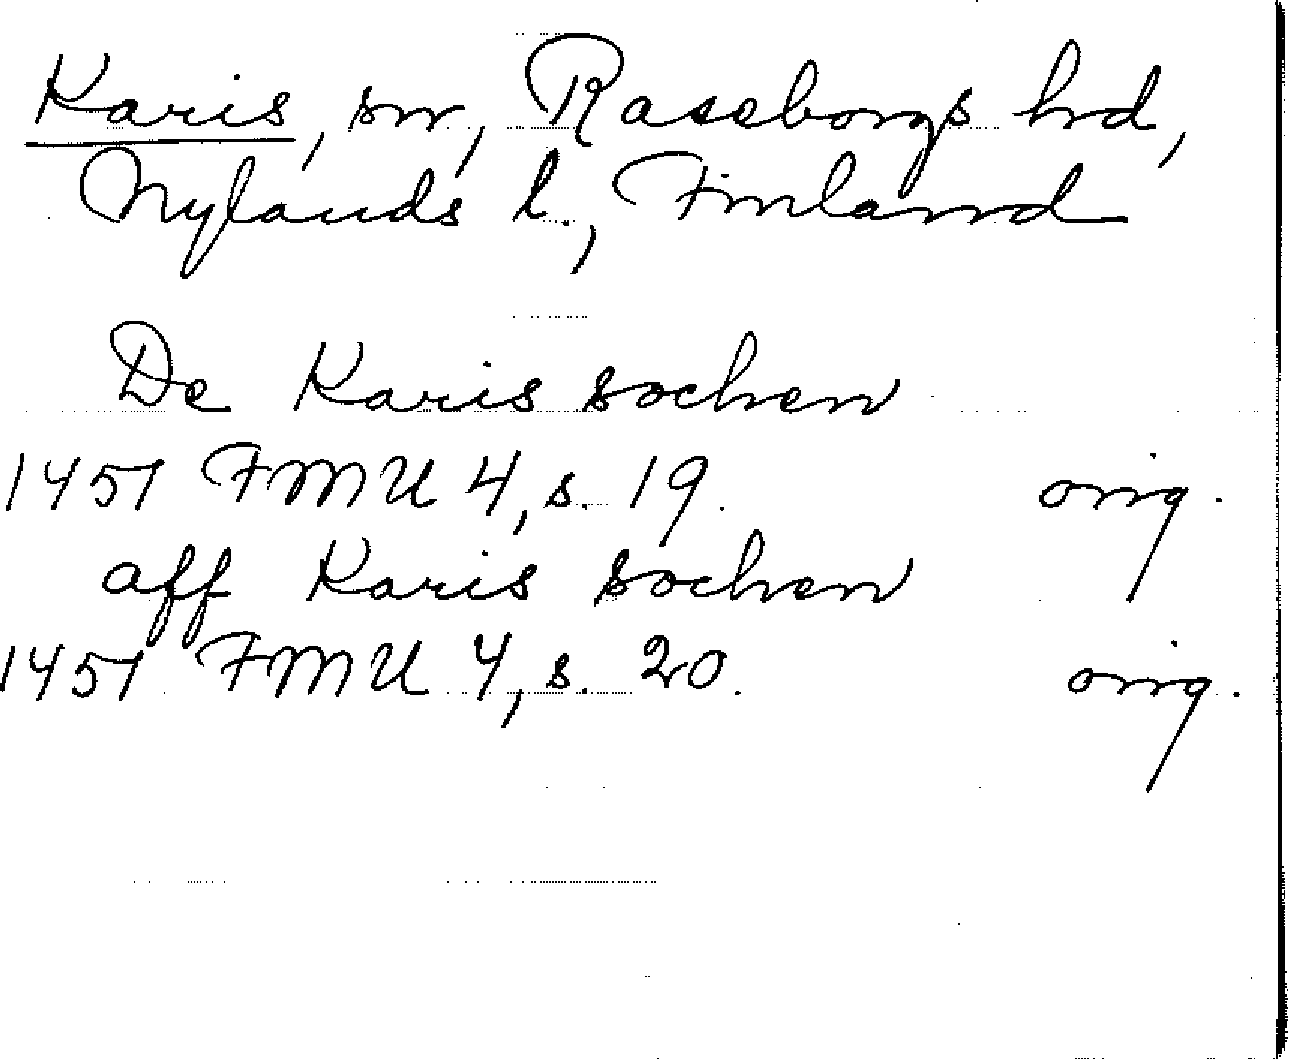 Karis, sn, Raseborgs hrd,
Nylands l., Finland
De Karis sochen
1451 FMU 4, s. 19. orig.
aff Karis sochen
1451 FMU 4, s. 20. orig.